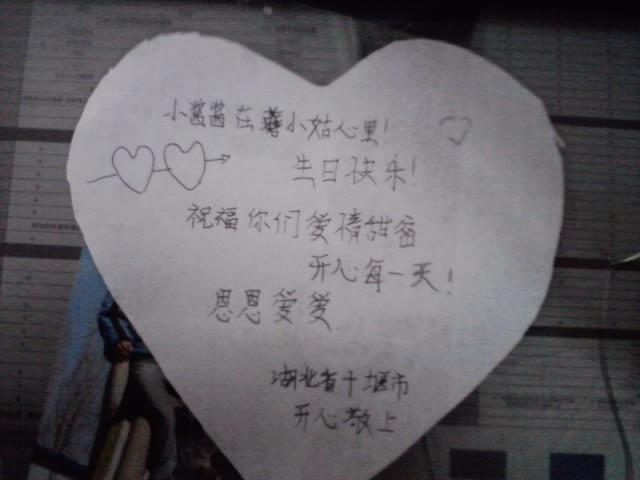 小酱酱在蘑小姑心里!
生日快乐!
祝福你们爱情甜密
开心每一天!
恩恩爱爱
湖北省十堰市
开心敬上